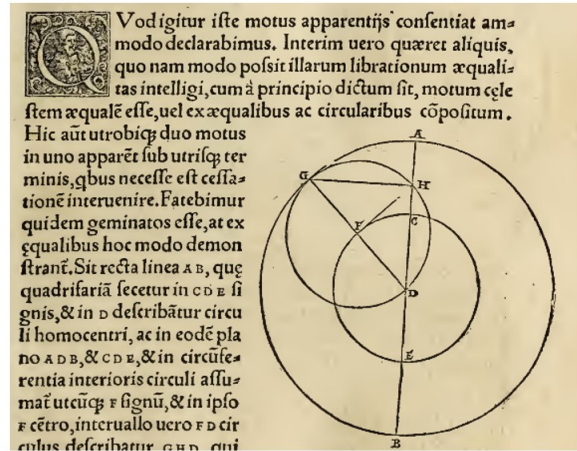 QVod igitur iste motus apparentijs consentiat am=
modo declarabimus. Interim uero quæret aliquis,
quo nam modo possit illarum librationum æquali=
tas intelligi, cum à principio dictum sit, motum cęle
stem æqualē esse, uel ex æqualibus ac circularibus cōpositum.
Hic aūt utrobiqꝫ duo motus
in uno apparēt sub utrisqꝫ ter
minis, qbus necesse est cessa=
tionē interuenire. Fatebimur
quidem geminatos esse, at ex
ęqualibus hoc modo demon
strant̄. Sit recta linea A B, quę
quadrifariā secetur in C D E si
gnis, & in D describātur circu
li homocentri, ac in eodē pla
no A D B, & C D E, & in circūfe=
rentia interioris circuli assu=
mat̄ utcūqꝫ F signū, & in ipso
F cētro, interuallo uero F D cir
culus describatur G H D, qui
A
G
H
C
F
D
E
B